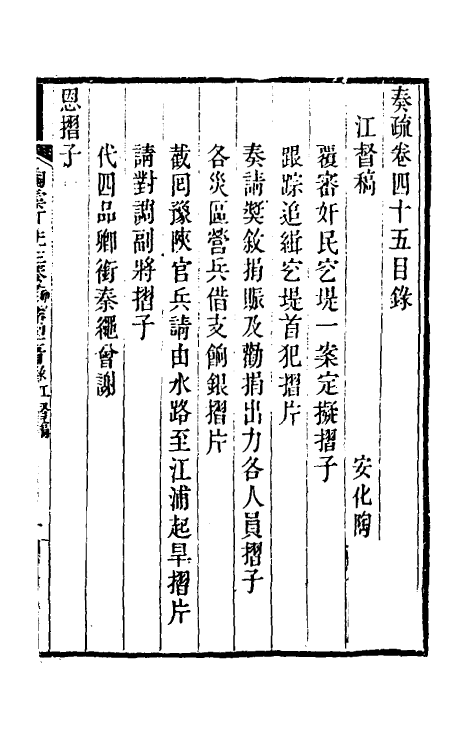 奏疏卷四十五目錄
江督稿
安化陶
覆審奸民穵堤一案定擬摺子
跟踪追緝穵堤首犯摺片
奏請奬敘捐賑及勸捐出力各人員摺子
各災區營兵借支餉銀摺片
截囘豫陝官兵請由水路至江浦起旱摺片
請對調副將摺子
代四品卿銜秦繩曾謝
恩摺子